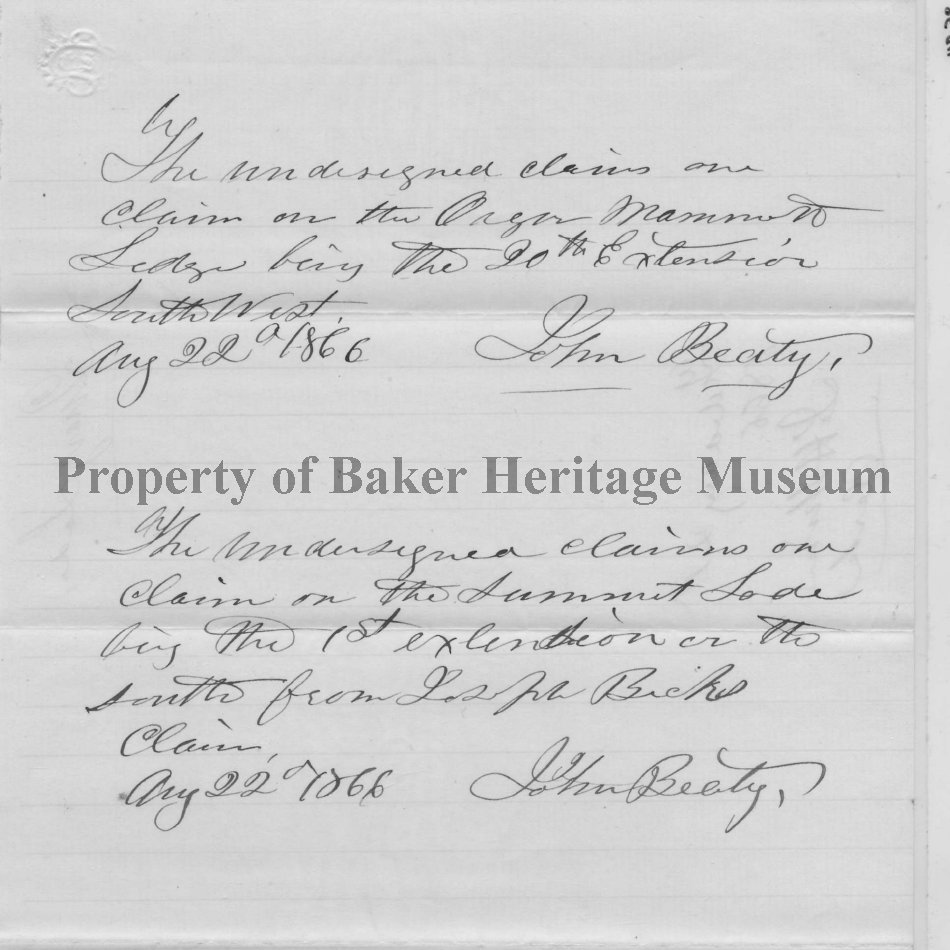 The undersigned claims one
claim on the Oregon Mammoth
Ledge being the 20th Extension
South West.
Aug 22d 1866 John Beaty,
Property of Baker Heritage Museum
The undersigned claims one
claim on the Summit Lode
being the 1st extension on the
south from Joseph Bicks
Claim,
Aug 22d 1866 John Beaty,